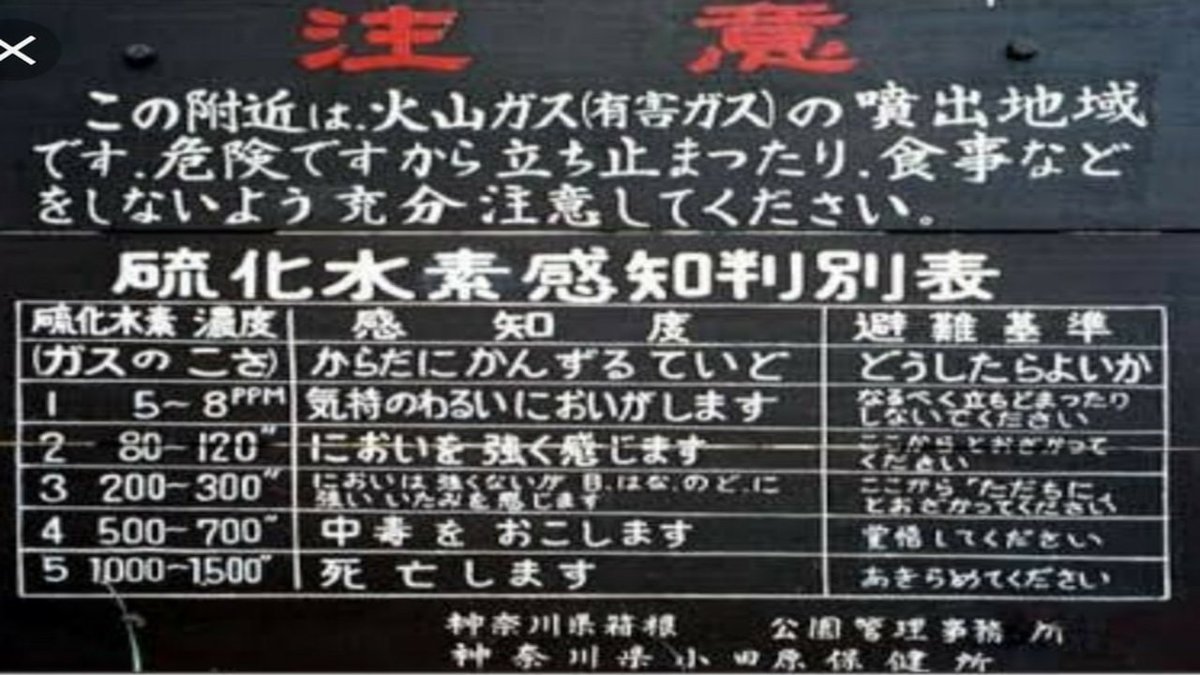 注意
この附近は、火山ガス(有害ガス)の噴出地域
です、危険ですから立ち止まったり、食事など
をしないよう充分注意してください。
硫化水素感知判別表
硫化水素 濃度 感知度 避難基準
(ガスの こさ) からだにかんずるていと どうしたらよいか
1 5~8PPM 気持のわるいにおいがします なるべく立ちどまったり
しないでください
2 80~120〃 においを強く感じます ここから とおざかって
ください
3 200~300〃 においは強くないが 目、はな、のど、に
強い いたみを感じます ここから「ただちに」
とおざかってください
4 500~700〃 中毒をおこします 覚悟してください
5 1,000~1,500〃 死亡します あきらめてください
神奈川県箱根 公園管理事務所
神奈川県小田原保健所